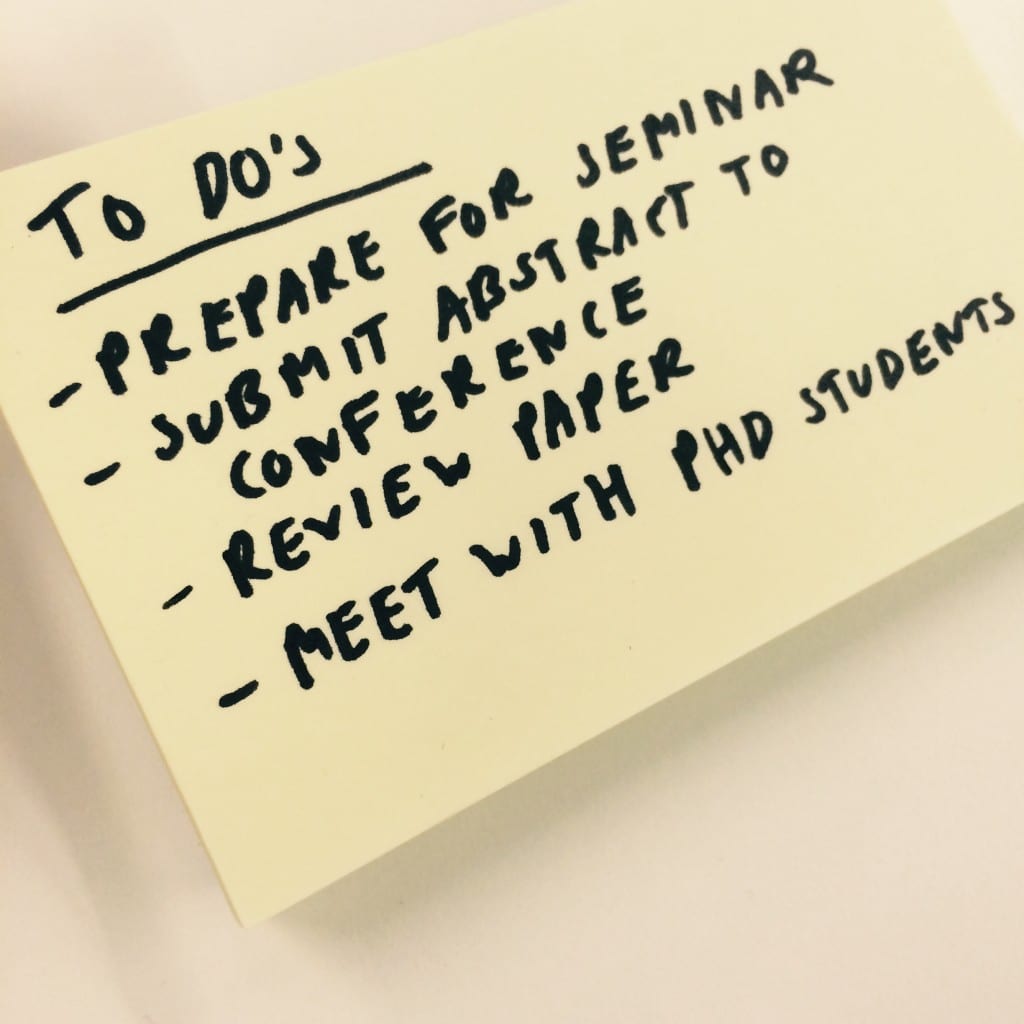 TO DO'S
- PREPARE FOR SEMINAR
- SUBMIT ABSTRACT TO
CONFERENCE
- REVIEW PAPER
- MEET WITH PHD STUDENTS